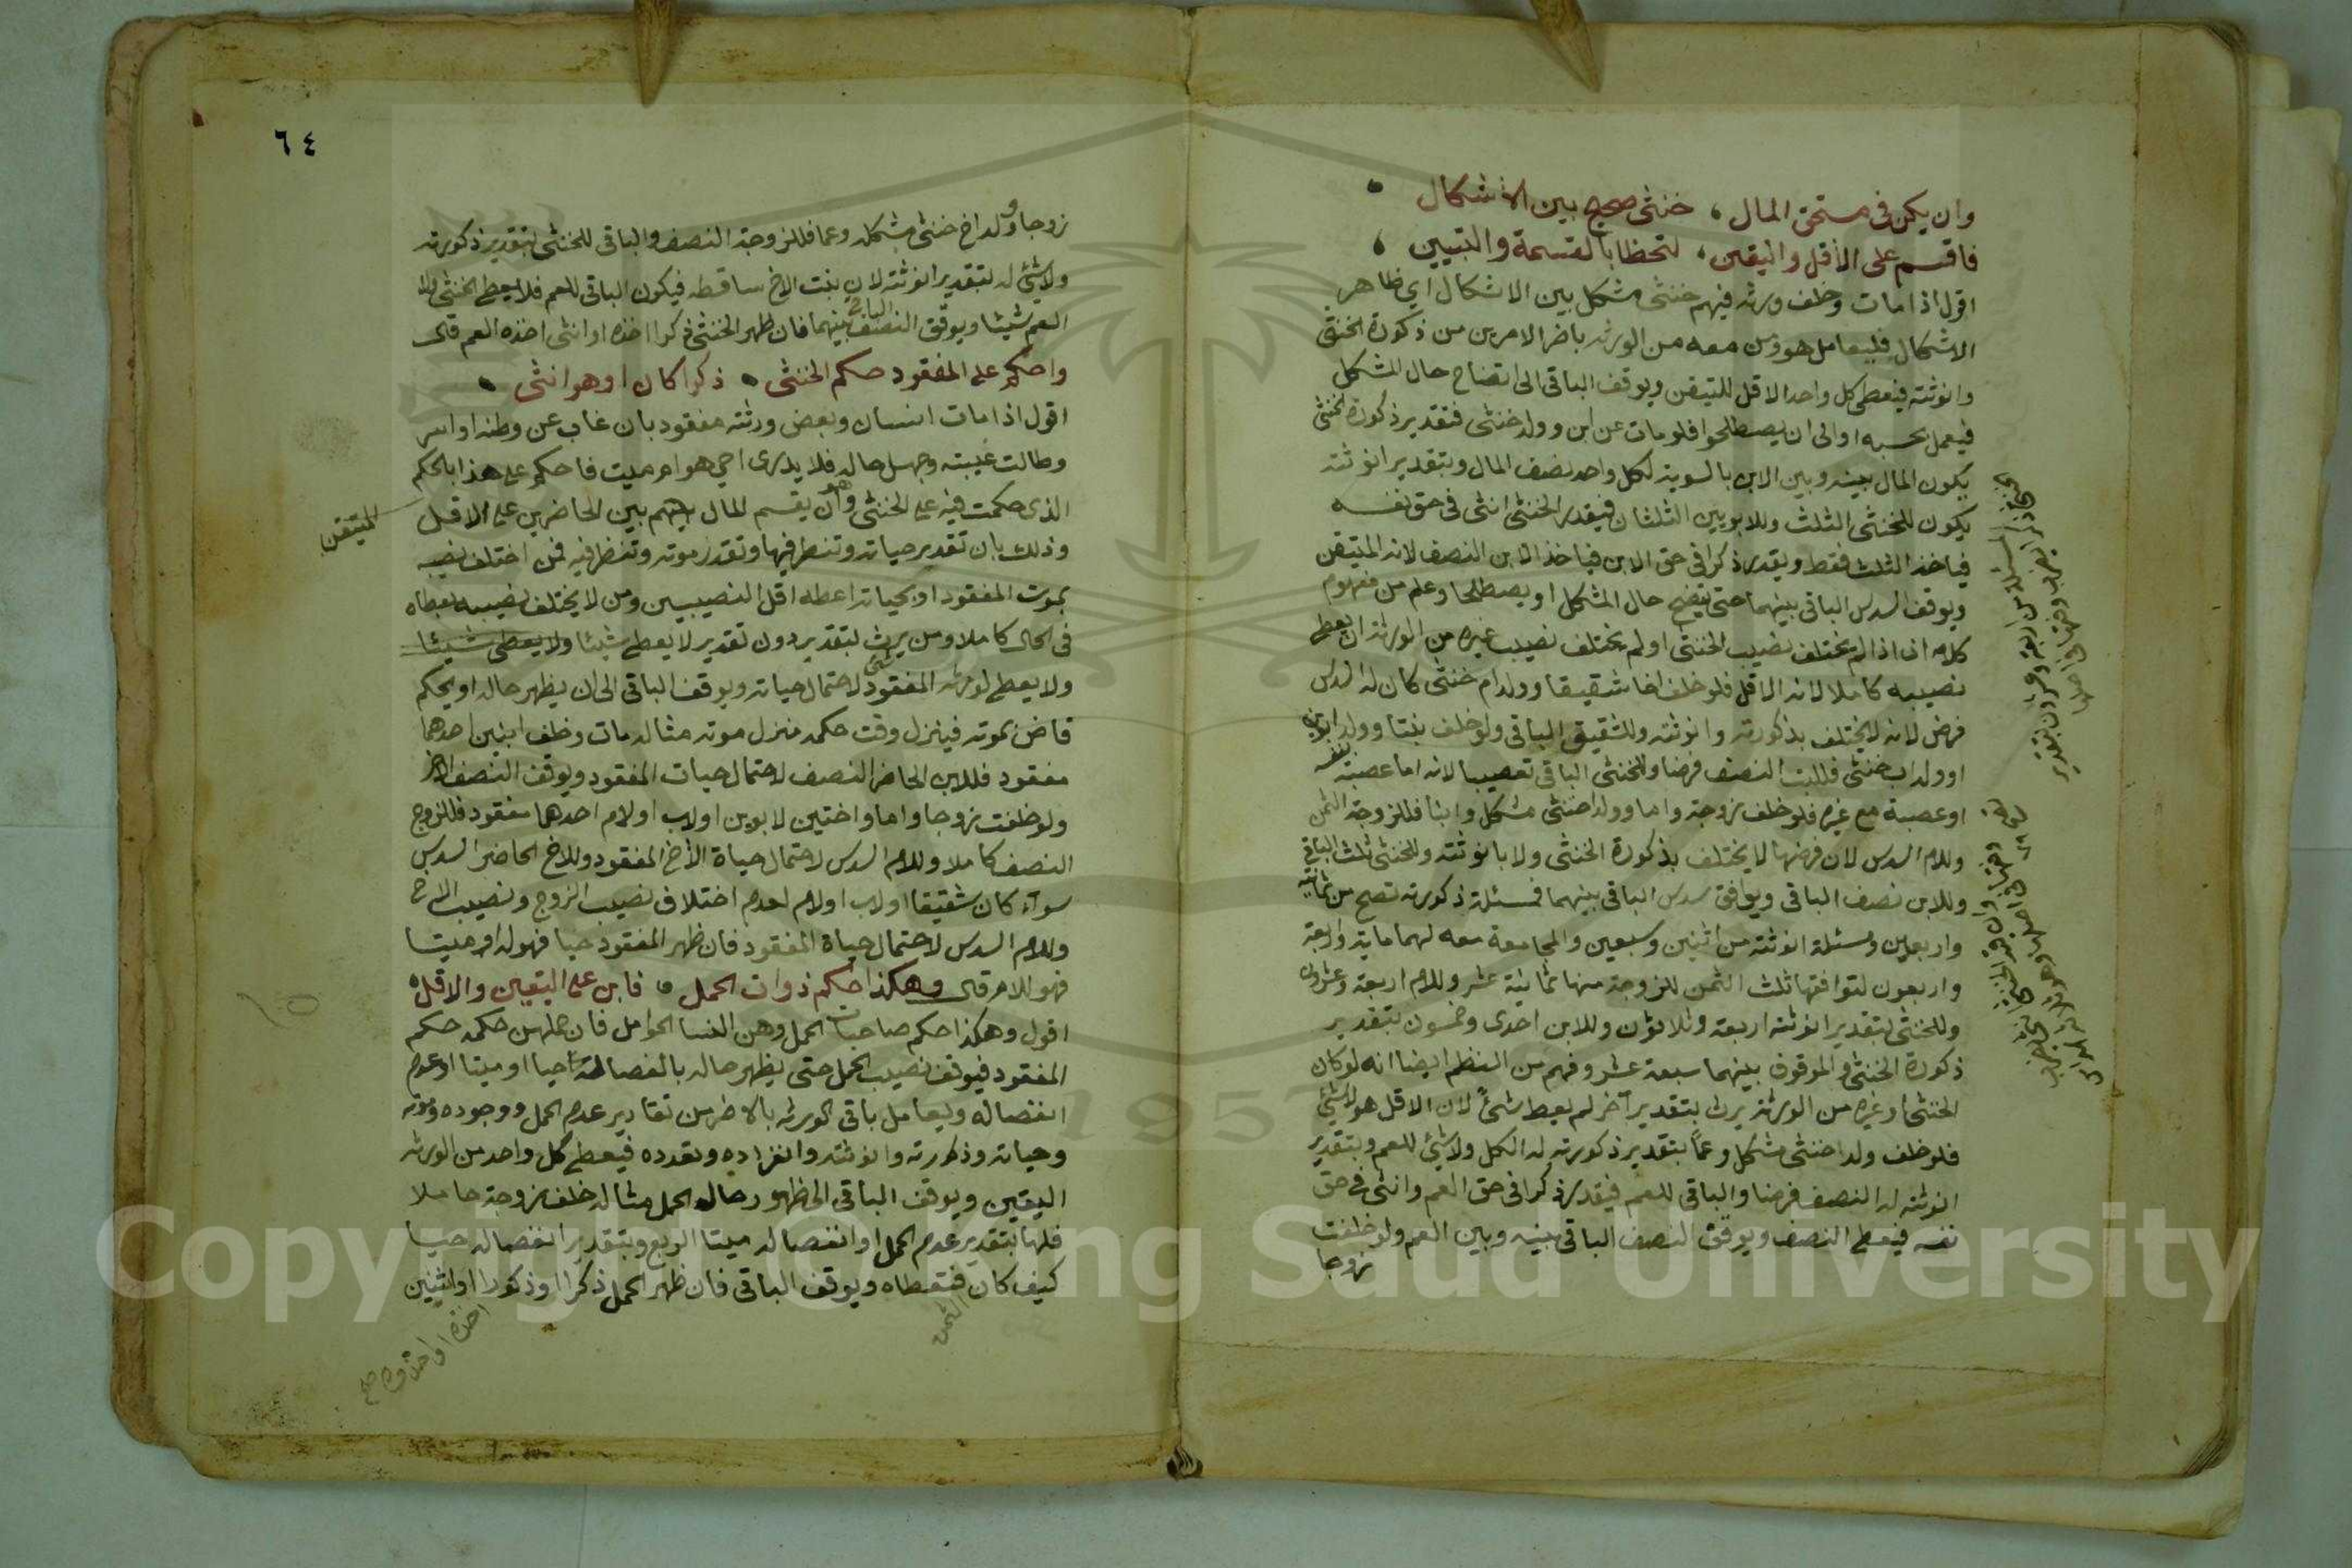 وان يكن في مستحق المال ، خنثى صحيح بين الاشكال
فاقسم على الاقل واليقين ، لتحظا بالقسمة والتبيين
اقول اذا مات وخلف ورثه فيهم خنثى مشكل بين الاشكال اي ظاهر
الاشكال فليعامل هو ومن معه من الورثه باضر الامرين من ذكورة الخنثى
وانوثته فيعطى كل واحد الاقل المتيقن ويوقف الباقي الى اتضاح حال المشكل
فيعمل بحسبه او الى ان يصطلحوا فلو مات عن ابن وولد خنثى فبتقدير ذكورة الخنثى
يكون المال بينه وبين الابن بالسوية لكل واحد نصف المال وبتقدير انوثته
يكون للخنثى الثلث وللابن الثلثان فيقدر الخنثى انثى في حق نفسه
فياخذ الثلث فقط ويقدر ذكرا في حق الابن فياخذ الابن النصف لانه المتيقن
ويوقف السدس الباقي بينهما حتى يتضح حال المشكل او يصطلحا وعلم من مفهوم
كلامه انه اذا لم يختلف نصيب الخنثى او لم يختلف نصيب غيره من الورثة ان يعطى
نصيبه كاملا لانه الاقل فلو خلف اخا شقيقا وولد ام خنثى كان له السدس
فرض لانه لا يختلف بذكورته وانوثته وللشقيق الباقي ولو خلف بنتا وولد ابوين
او ولد اب خنثى فللبنت النصف فرضا وللخنثى الباقي تعصيبا لانه اما عصبة بنفسه
او عصبة مع غيره فلو خلف زوجة واما وولدا خنثى مشكل وابنا فللزوجة الثمن
وللام السدس لان فرضهما لا يختلف بذكورة الخنثى ولا بانوثته وللخنثى ثلث الباقي
وللابن نصف الباقي ويوقف سدس الباقي بينهما فمسئلة ذكورته تصح من ثمانية
واربعين ومسئلة انوثته من اثنين وسبعين والجامعة معه لهما ماية واربعة
واربعون لتوافقهما بثلث الثمن للزوجة منها ثمانية عشر وللام اربعة وعشرون
وللخنثى بتقدير انوثته اربعة وثلاثون وللابن احدى وخمسون بتقدير
ذكورة الخنثى والموقوف بينهما سبعة عشر وفهم من النظم ايضا انه لو كان
الخنثى او غيره من الورثة يرث بتقدير آخر لم يعط شئ لان الاقل هو لاشئ
فلو خلف ولدا خنثى مشكل وعما بتقدير ذكورته له الكل ولا شئ للعم وبتقدير
انوثته له النصف فرضا والباقي للعم فيقدر ذكرا في حق العم وانثى في حق
نفسه فيعطى النصف ويوقف النصف الباقي بينه وبين العم ولو خلفت
زوجا
٦٤
زوجا وولد اخ خنثى مشكله وعما فللزوجة النصف والباقي للخنثى بتقدير ذكورته
ولا شئ له بتقدير انوثته لان بنت الاخ ساقطه فيكون الباقي للعم فلا يعطى الخنثى ولا
العم شيئا ويوقف النصف الباقي بينهما فان ظهر الخنثى ذكرا اخذه او انثى اخذه العم قال
واحكم على المفقود حكم الخنثى ، ذكرا كان او هو انثى
اقول اذا مات انسان وبعض ورثته مفقود بان غاب عن وطنه او اسر
وطالت غيبته وجهل حاله فلا يدرى احي هو ام ميت فاحكم على هذا بالحكم
الذى حكمت فيه على الخنثى وهو ان يقسم المال بين الحاضرين على الاقل
المتيقن
وذلك بان تقدير حياته وتنظر فيها وتقدر موته وتنظر فيه فمن اختلف نصيبه
بموت المفقود او بحياته اعطه اقل النصيبين ومن لا يختلف نصيبه يعطاه
في الحال كاملا ومن يرث بتقدير دون تقدير لا يعطى شيئا ولا يعطى شيئا
ولا يعطى لورثه المفقود شئ لاحتمال حياته ويوقف الباقي الى ان يظهر حاله او يحكم
قاض بموته فينزل وقت حكمه منزل موته مثاله مات وخلف ابنين احدهما
مفقود فللابن الحاضر النصف لاحتمال حيات المفقود ويوقف النصف الاخر
ولو خلفت زوجا واما واختين لابوين او لاب او لام احدهما مفقود فللزوج
النصف كاملا وللام السدس لاحتمال حياة الاخ المفقود وللاخ الحاضر السدس
سوآء كان شقيقا او لاب او لام لعدم اختلاف نصيب الزوج ونصيب الاخ
وللام السدس لاحتمال حياة المفقود فان ظهر المفقود حيا فهو له او ميتا
فهو للام قال وهكذا حكم ذوات الحمل ، فابن على اليقين والاقل
اقول وهكذا حكم صاحبات الحمل وهن النسا الحوامل فان حملهن حكمه حكم
المفقود فيوقف نصيب الحمل حتى يظهر حاله بانفصاله حيا او ميتا او عدم
انفصاله ويعامل باقي الورثه بالاضر من تقادير عدم الحمل ووجوده وموته
وحياته وذكورته وانوثته وانفراده وتعدده فيعطى كل واحد من الورثه
اليقين ويوقف الباقي الى ظهور حال الحمل مثاله خلف زوجة حاملا
فلها بتقدير عدم الحمل او انفصاله ميتا الربع وبتقدير انفصاله حيا
كيف كان الثمن فتعطاه ويوقف الباقي فان ظهر الحمل ذكرا او ذكورا او انثيين
Copyright © King Saud University
1957